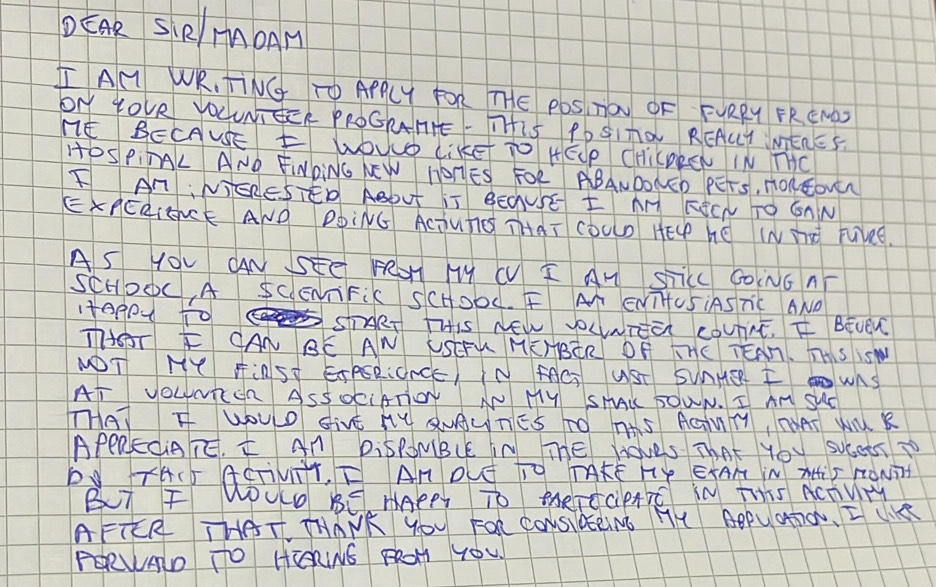 DEAR SIR/MADAM
I AM WRITING TO APPLY FOR THE POSITION OF FURRY FRIENDS
ON YOUR VOLUNTEER PROGRAMME. THIS POSITION REALLY INTERES
ME BECAUSE I WOULD LIKE TO HELP CHILDREN IN THE
HOSPITAL AND FINDING NEW HOMES FOR ABANDONED PETS, MOREOVER
I AM INTERESTED ABOUT IT BECAUSE I AM KEEN TO GAIN
EXPERIENCE AND DOING ACTIVITIES THAT COULD HELP ME IN THE FUTURE.
AS YOU CAN SEE FROM MY CV I AM STILL GOING AT
SCHOOL, A SCIENTIFIC SCHOOL. I AM ENTHUSIASTIC AND
HAPPY TO START THIS NEW VOLUNTEER I
THAT I CAN BE AN USEFUL MEMBER OF THE TEAM. THIS IS
NOT MY FIRST EXPERIENCE, IN FACT LAST SUMMER I WAS
AT VOLUNTEER ASSOCIATION IN MY SMALL TOWN. I AM SURE
THAT I WOULD GIVE MY QUALITIES TO THIS ACTIVITY, THAT WILL BE
APPRECIATE. I AM DISPONIBLE IN THE HOURS THAT YOU SUGGEST TO
DO THIS ACTIVITY. I AM DUE TO TAKE MY EXAM IN THIS MONTH
BUT I WOULD BE HAPPY TO PARTECIPATE IN THIS ACTIVITY
AFTER THAT. THANK YOU FOR CONSIDERING MY APPLICATION. I
FORWARD TO HEARING FROM YOU.